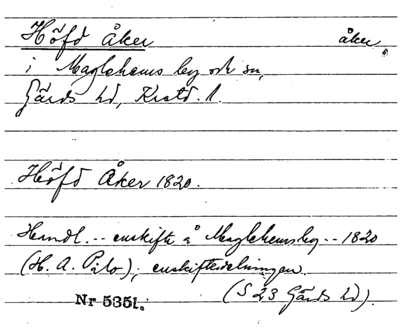 Höfd Åker åker,
i Maglehems by och sn,
Gärds hd, Krstd. l.
Höfd Åker 1820.
Handl. -- enskifte å Maglehemsby -- 1820
(H. A. ); enskiftesdelningen.
Nr 5351. (S 23 Gärds hd).